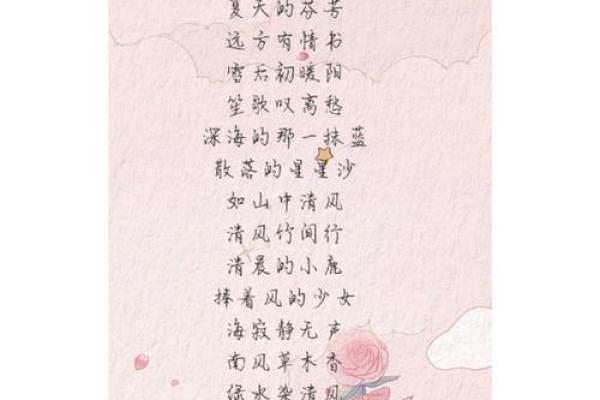 夏天的芬芳
远方有情书
雪后初暖阳
笙歌叹离愁
深海的那一抹蓝
散落的星星沙
如山中清风
清风竹间行
清晨的小鹿
捧着风的少女
海寂静无声
南风草木香
绿水染清风